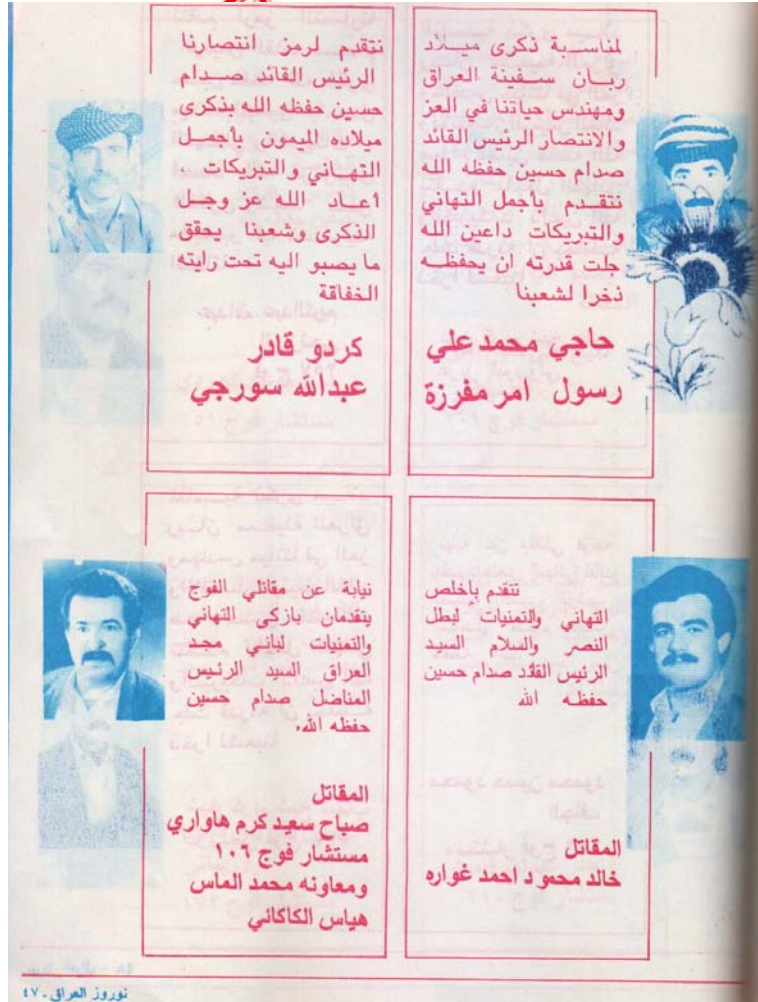 لمناسبة ذكرى ميلاد
ربان سفينة العراق
ومهندس حياتنا في العز
والانتصار الرئيس القائد
صدام حسين حفظه الله
نتقدم بأجمل التهاني
والتبريكات داعين الله
جلت قدرته ان يحفظه
ذخرا لشعبنا
حاجي محمد علي
رسول امر مفرزة
نتقدم لرمز انتصارنا
الرئيس القائد صدام
حسين حفظه الله بذكرى
ميلاده الميمون بأجمل
التهاني والتبريكات .
أعاد الله عز وجل
الذكرى وشعبنا يحقق
ما يصبو اليه تحت رايته
الخفاقة
كردو قادر
عبدالله سورجي
نتقدم بإخلص
التهاني والتمنيات لبطل
النصر والسلام السيد
الرئيس القائد صدام حسين
حفظه الله
المقاتل
خالد محمود احمد غواره
نيابة عن مقاتلي الفوج
يتقدمان بازكى التهاني
والتمنيات لباني مجد
العراق السيد الرئيس
المناضل صدام حسين
حفظه الله.
المقاتل
صباح سعيد كرم هاواري
مستشار فوج ١٠٦
ومعاونه محمد الماس
هياس الكاكائي
نوروز العراق - ٤٧